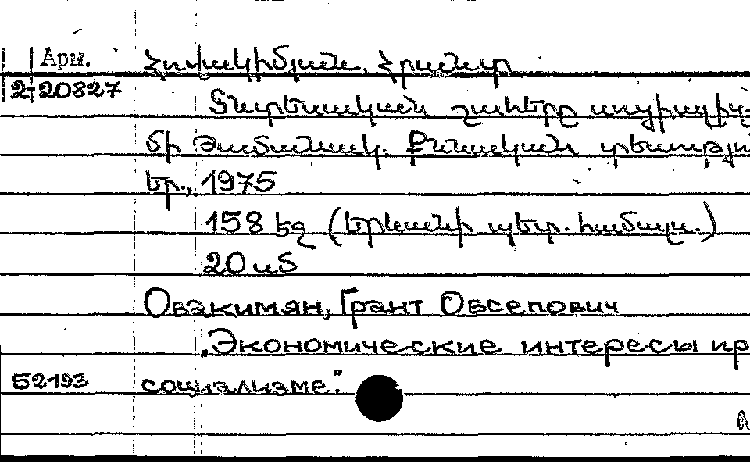 Арм. Հովակիմյան, Հրանտ
2-20827
Տնտեսական շահերը սոցիալիզ
մի ժամանակ. Քննական
Եր., 1975
158 էջ (Երևանի պետ. համալս.)
20 սմ
Овакимян, Грант Овсепович
„Экономические интересы пр
Б2193 социализме."